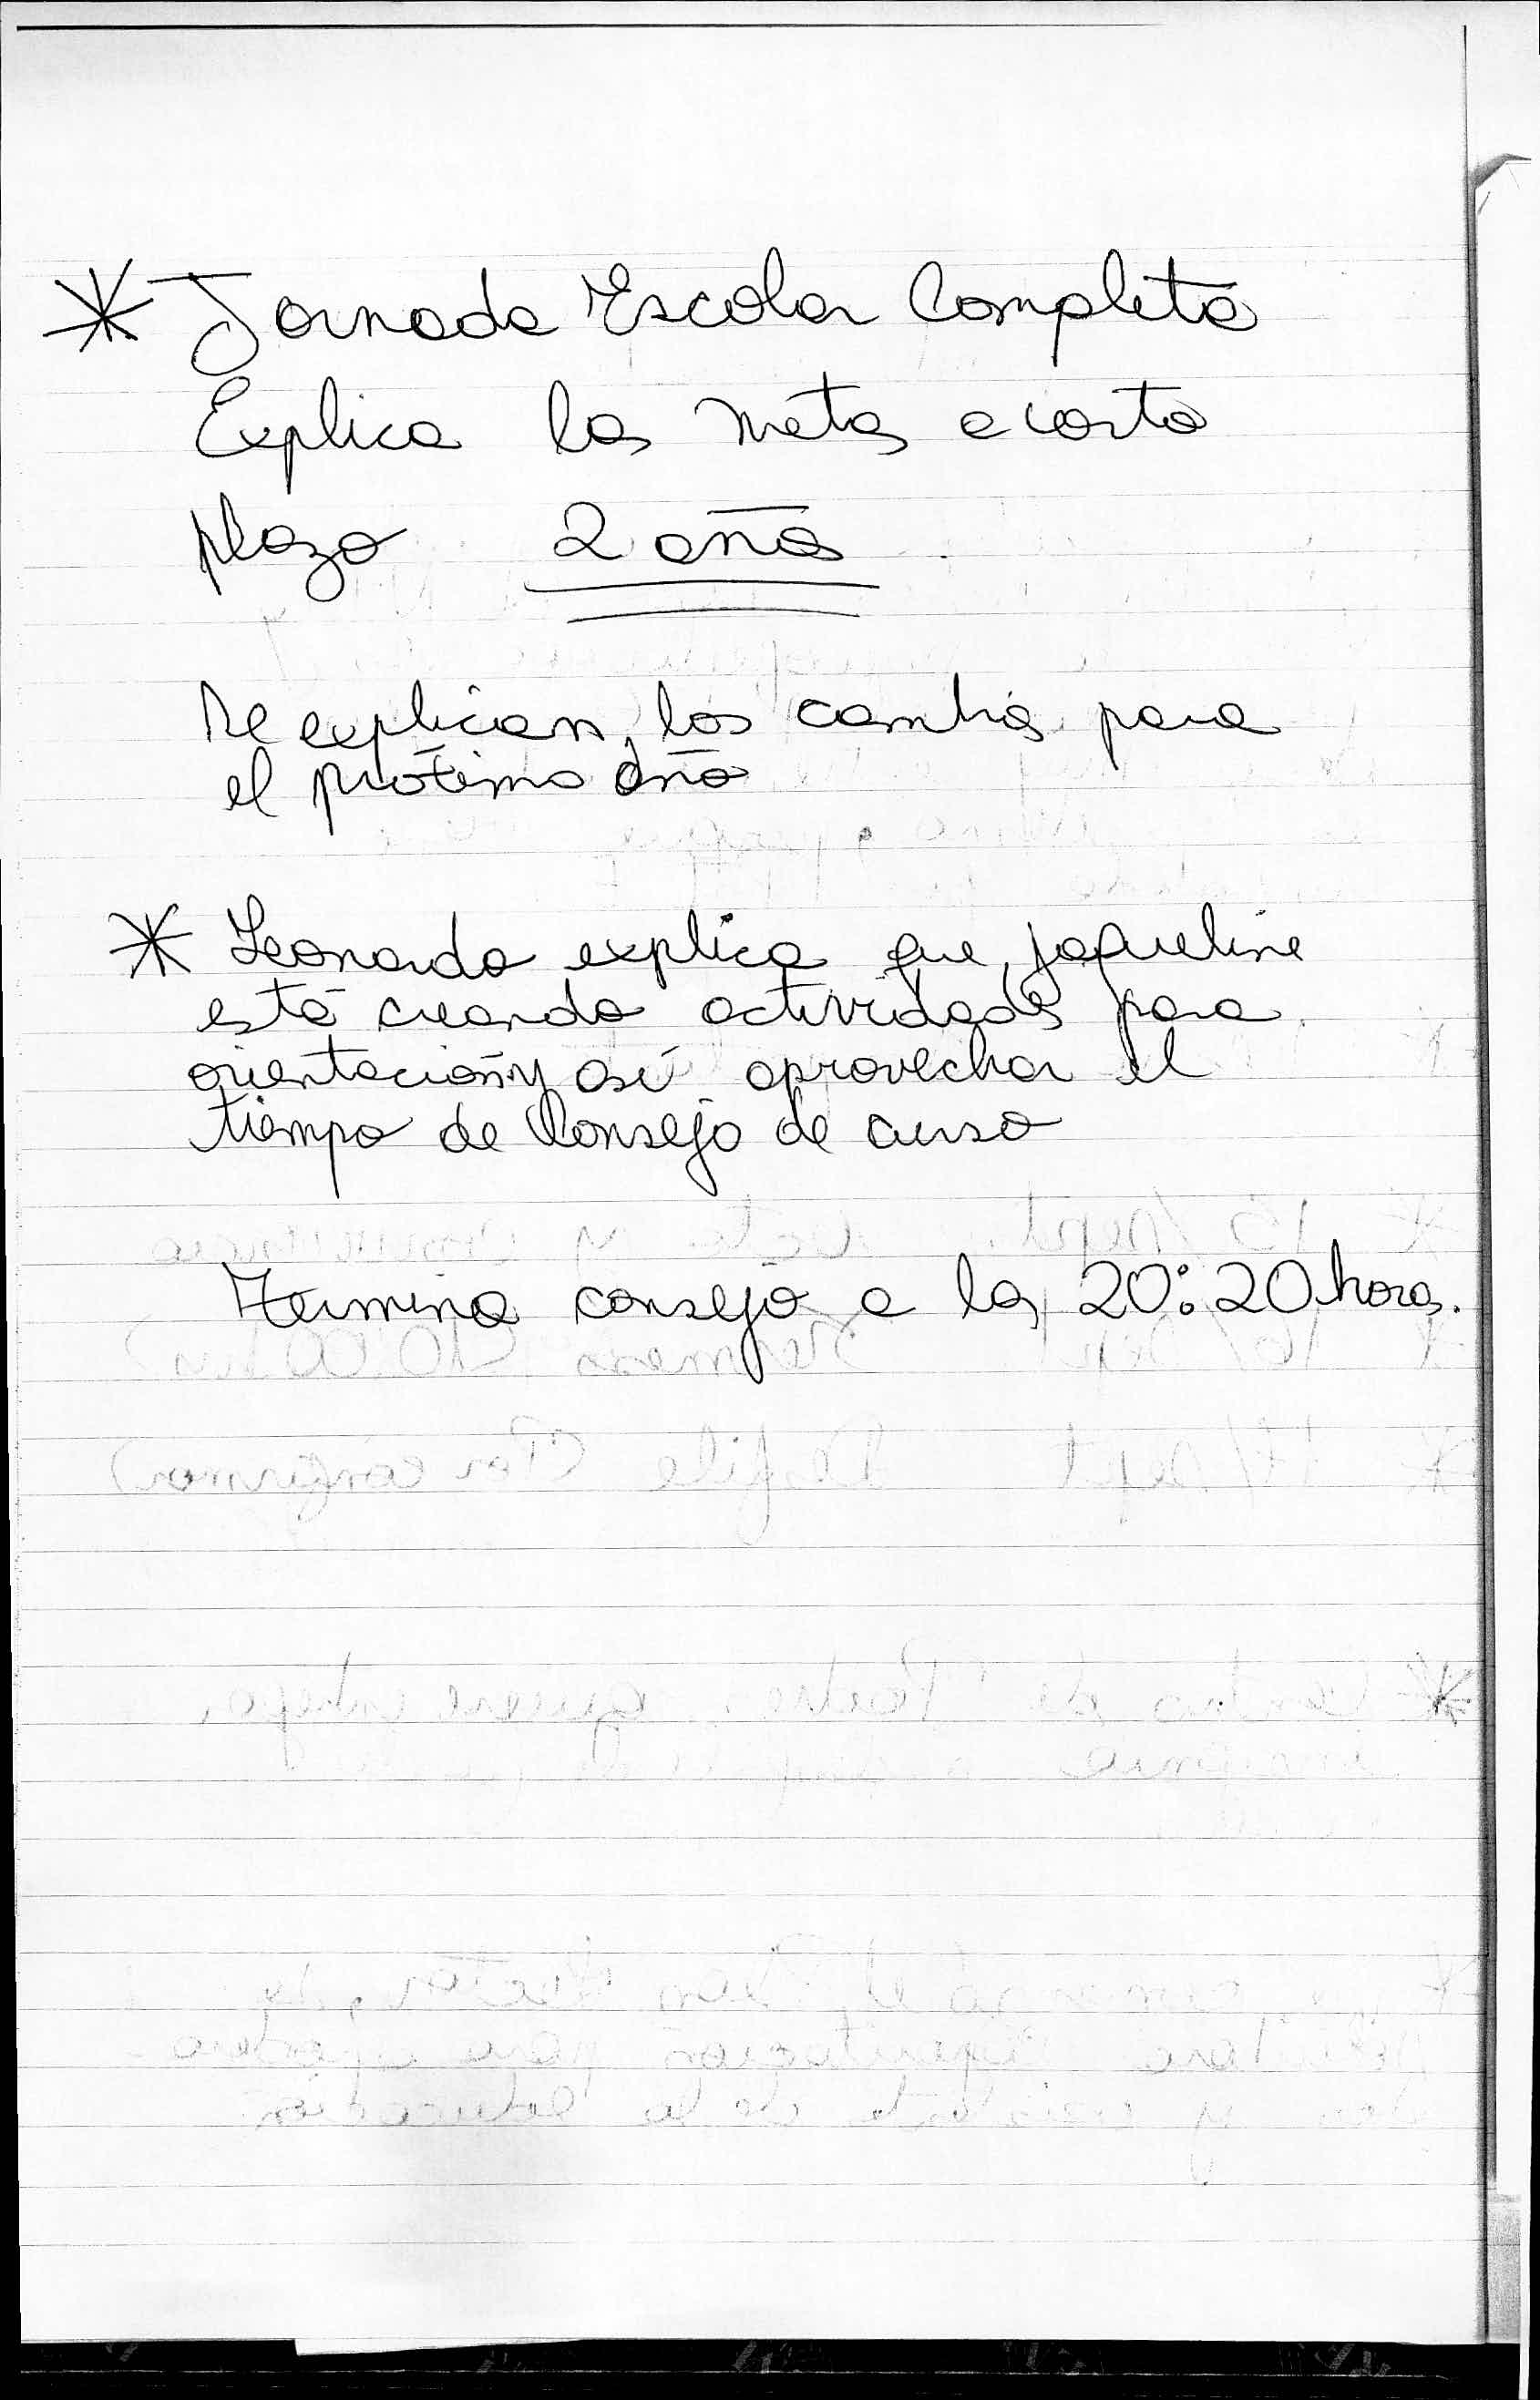 * Jornada Escolar Completa
Explica las metas a corto
plazo 2 años
Se explican los cambios para
el próximo año
* Leonardo explica que Jaqueline
está creando actividades para
orientación y así aprovechar el
tiempo de Consejo de curso
Termina consejo a las 20:20 horas.